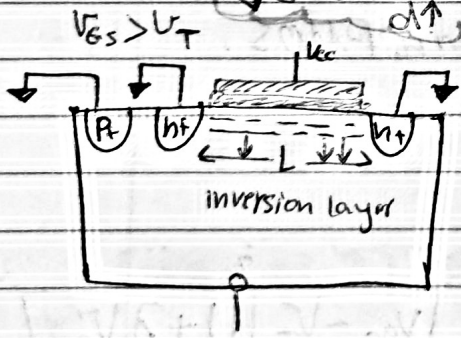 VGS > VT
d↑
Vcc
P+ n+ n+
L
inversion layer